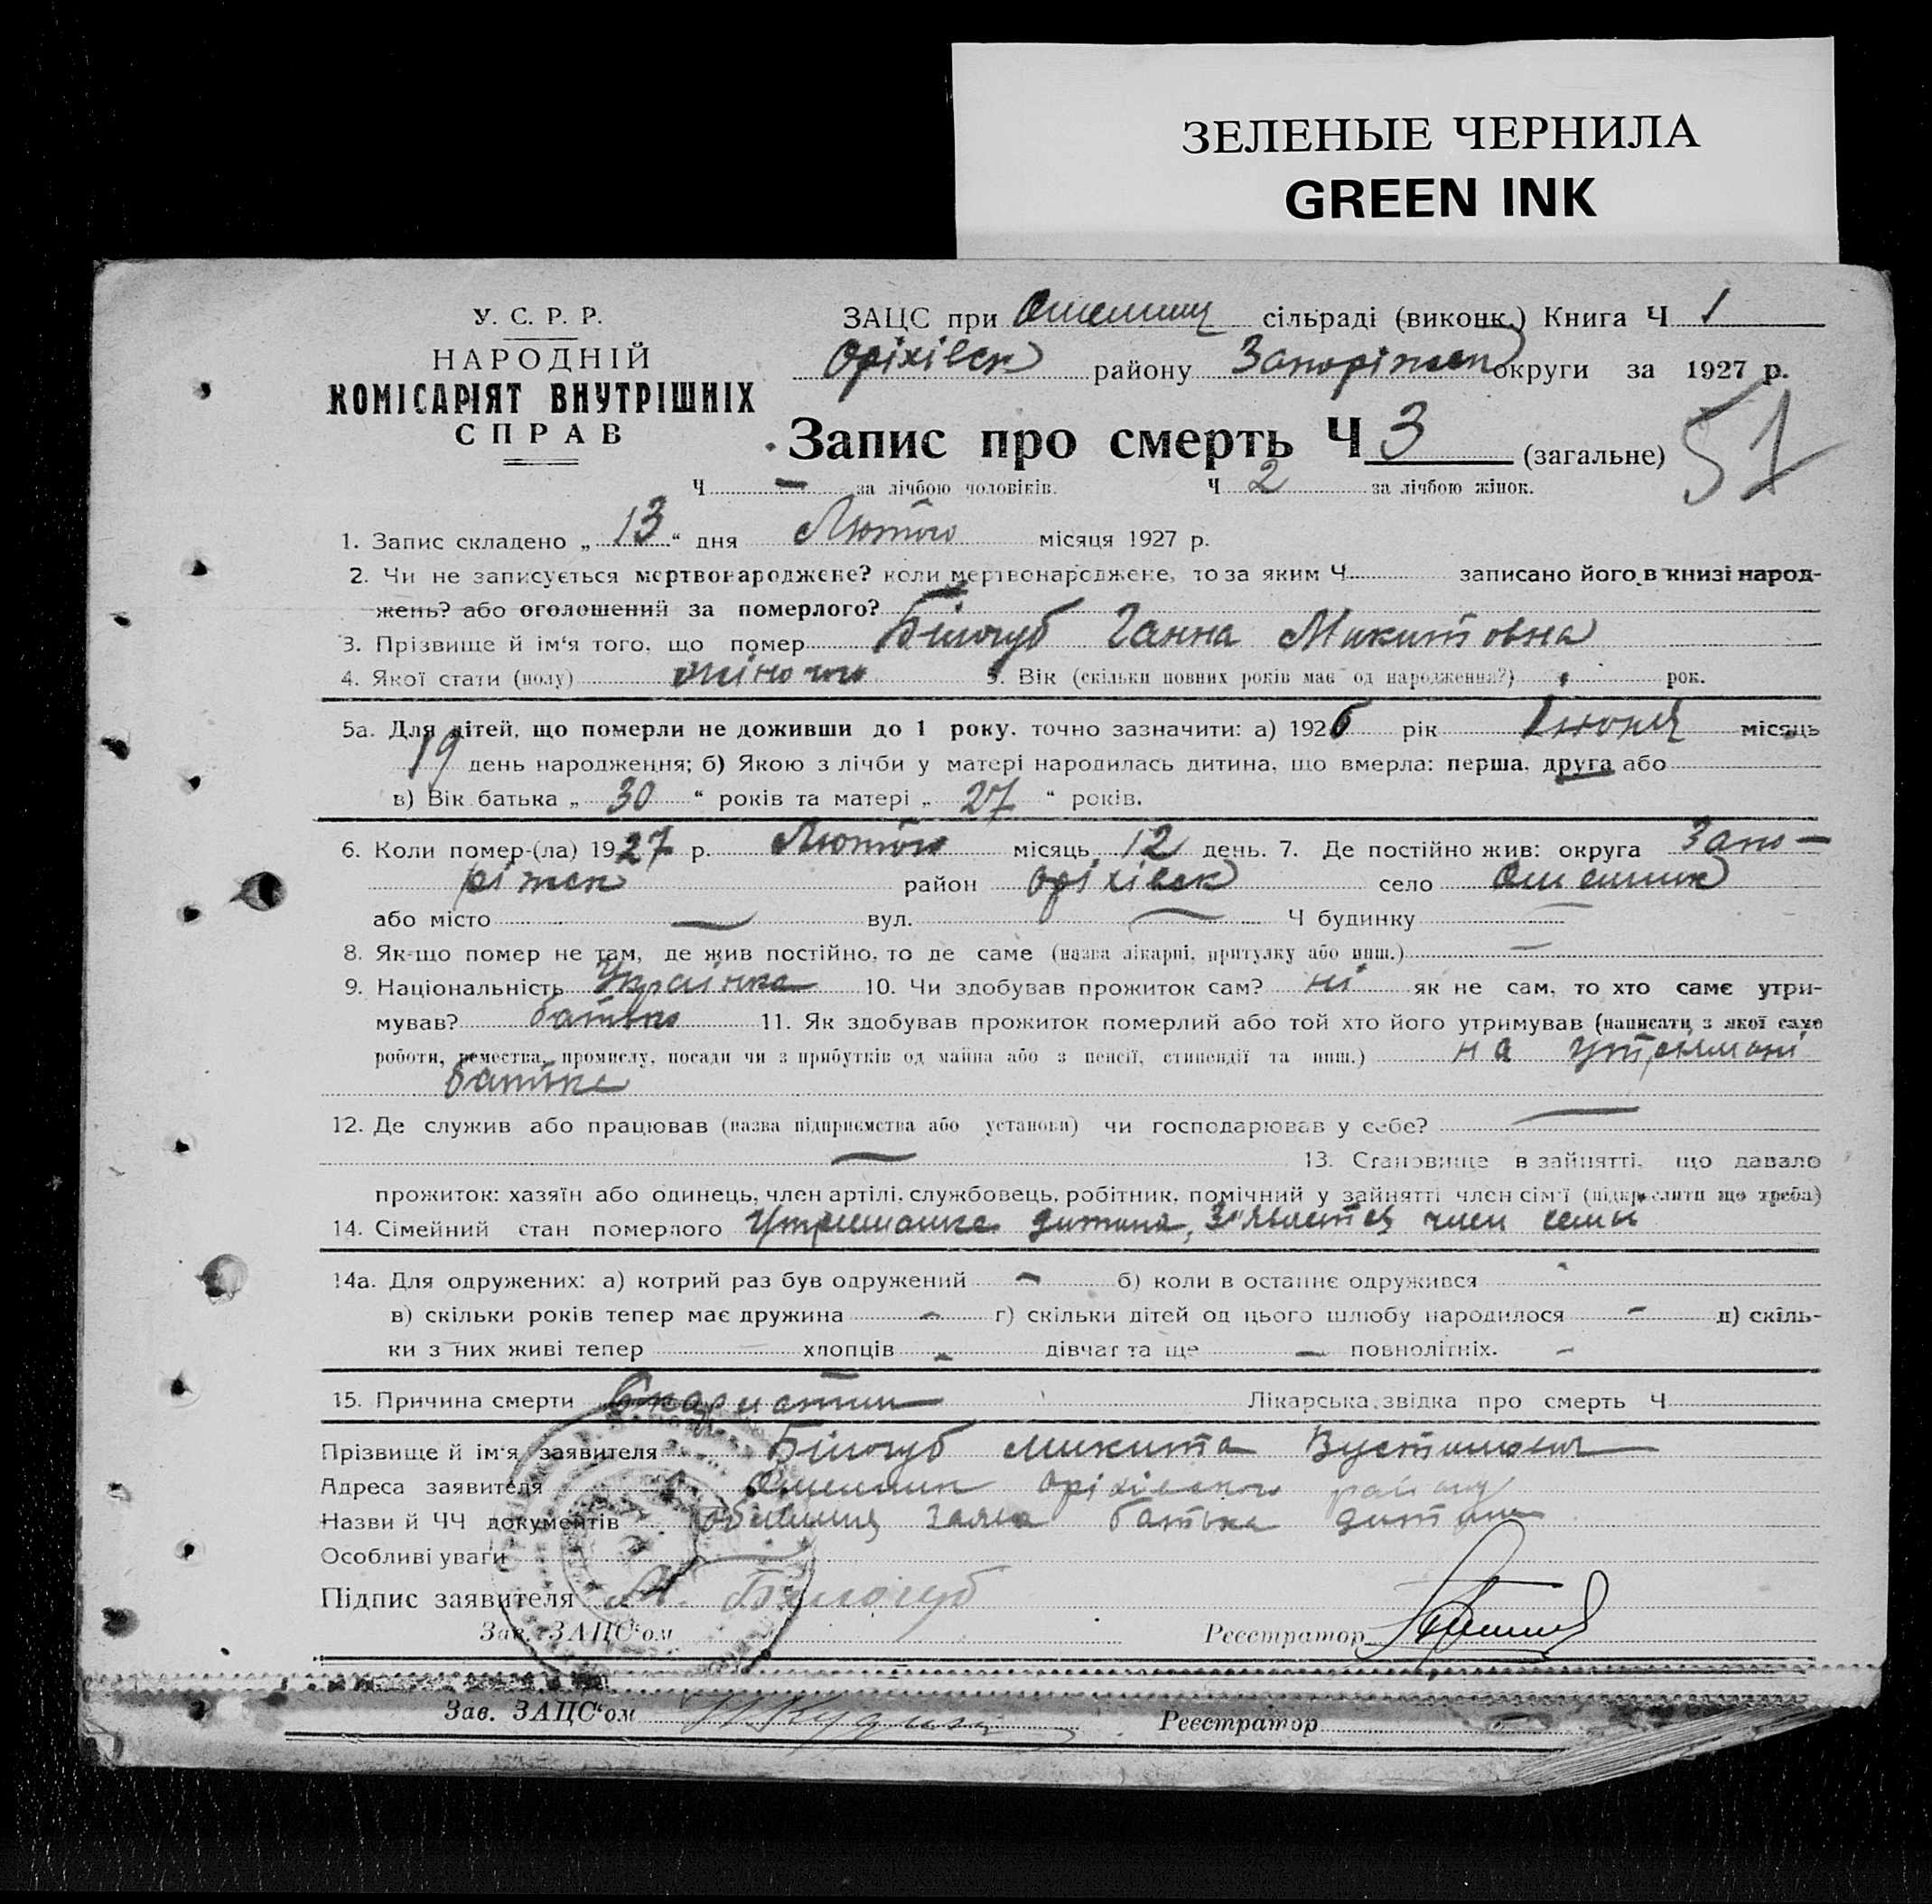 ЗЕЛЕНЫЕ ЧЕРНИЛА
GREEN INK
У. С. Р. Р.
НАРОДНІЙ
КОМІСАРІЯТ ВНУТРІШНІХ
СПРАВ
ЗАЦС при сільраді (виконк.) Книга Ч 1
Оріхівск району Запоріжск округи за 1927 р.
Запис про смерть Ч 3 (загальне) 51
Ч — за лічбою чоловіків. Ч 2 за лічбою жінок.
1. Запис складено „ 13 “ дня Лютого місяця 1927 р.
2. Чи не записується мертвонароджене? коли мертвонароджене, то за яким Ч записано його в книзі народ-
жень? або оголошений за померлого?
3. Прізвище й ім‘я того, що помер Білогуб Ганна Микитовна
4. Якої стати (полу) жіночого 5. Вік (скільки повних років має од народження?) рок.
5а. Для дітей, що померли не доживши до 1 року, точно зазначити: а) 1926 рік місяць
19 день народження; б) Якою з лічби у матері народилась дитина, що вмерла: перша, друга або
в) Вік батька „ 30 “ років та матері „ 27 “ років.
6. Коли помер-(ла) 1927 р. Лютого місяць 12 день. 7. Де постійно жив: округа Запо-
ріжск район Оріхівск село
або місто — вул. — Ч будинку —
8. Як-що помер не там, де жив постійно, то де саме (назва лікарні, притулку або инш.) —
9. Національність Українка 10. Чи здобував прожиток сам? ні як не сам, то хто саме утри-
мував? батько 11. Як здобував прожиток померлий або той хто його утримував (написати з якої саме
роботи, ремества, промислу, посади чи з прибутків од майна або з пенсії, стипендії та инш.) на утримані
батька
12. Де служив або працював (назва підприємства або установи) чи господарював у себе? —
— 13. Становище в зайнятті, що давало
прожиток: хазяїн або одинець, член артілі, службовець, робітник, помічний у зайнятті член сім‘ї (підкреслити що треба)
14. Сімейний стан померлого дитина, член семьи
14а. Для одружених: а) котрий раз був одружений — б) коли в останнє одружився
в) скільки років тепер має дружина — г) скільки дітей од цього шлюбу народилося — д) скіль-
ки з них живі тепер хлопців — дівчат та ще — повнолітніх. —
15. Причина смерти Скарлатин Лікарська звідка про смерть Ч
Прізвище й ім‘я заявителя Білогуб Микита
Адреса заявителя Оріхівського району
Назви й ЧЧ документів заява батька дитини
Особливі уваги —
Підпис заявителя Білогуб
Зав. ЗАЦС‘ом Реєстратор
Зав. ЗАЦС‘ом Реєстратор